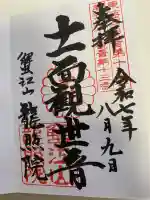 奉拝
令和七年
八月九日
十一面観世音
蟹江山
龍照院